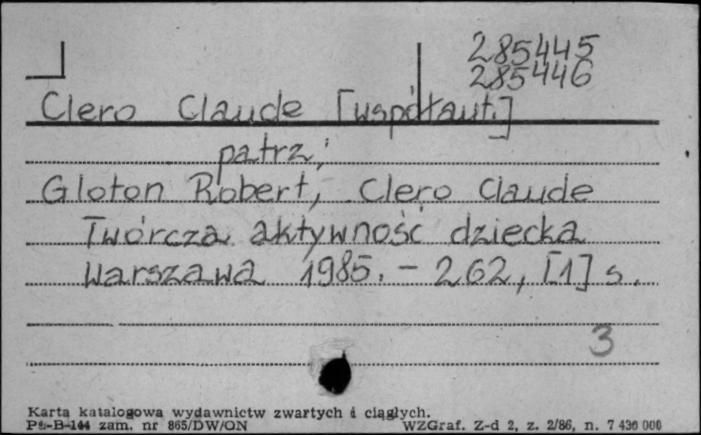 285445
285446
Clero Claude [współaut.]
patrz:
Gloton Robert, Clero Claude
Twórcza aktywność dziecka
Warszawa 1985. - 262, [1] s.
3
Karta katalogowa wydawnictw zwartych i ciągłych.
Pu-B-144 zam. nr 865/DW/ON WZGraf. Z-d 2, z. 2/86, n. 7 430 000